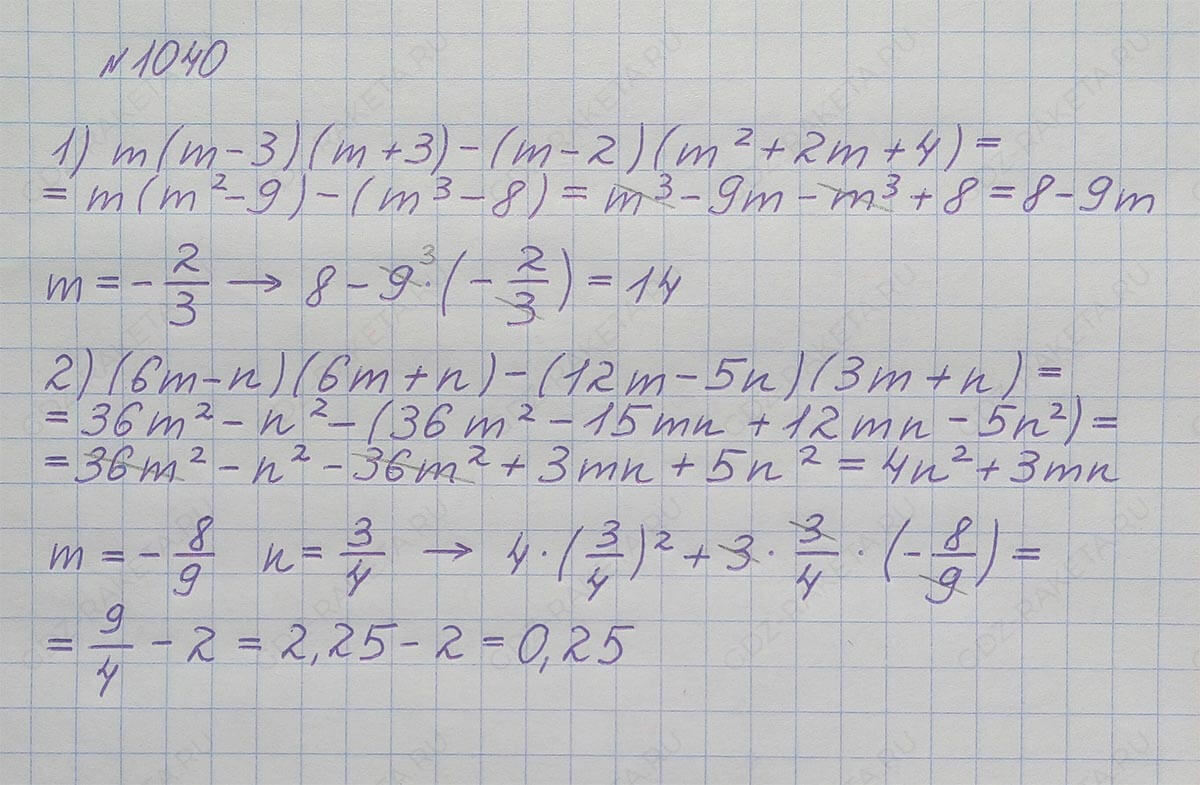 №1040
1) m(m-3)(m+3)-(m-2)(m²+2m+4)=
= m(m²-9)-(m³-8)= m³-9m-m³+8=8-9m
m=-2/3 → 8-9³·(-2/3)=14
2) (6m-n)(6m+n)-(12m-5n)(3m+n)=
=36m²-n²-(36m²-15mn+12mn-5n²)=
=36m²-n²-36m²+3mn+5n²=4n²+3mn
m=-8/9 n=3/4 → 4·(3/4)²+3·3/4·(-8/9)=
=9/4-2=2,25-2=0,25
GDZ-RAKETA.RU